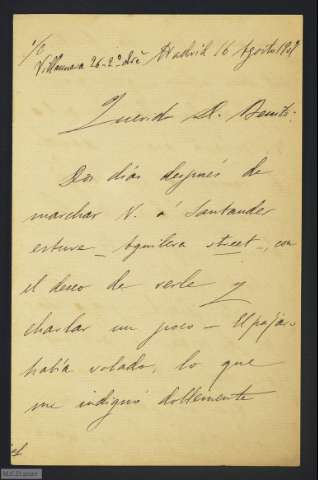 Villanueva 26-2º dcha Madrid 16 Agosto 1901
Querido D. Benito:
Dos días después de
marchar V. á Santander
estuve - Aguilera street -, con
el deseo de verle y
charlar un poco - El pája-
había volado, lo que
me indignó doblemente